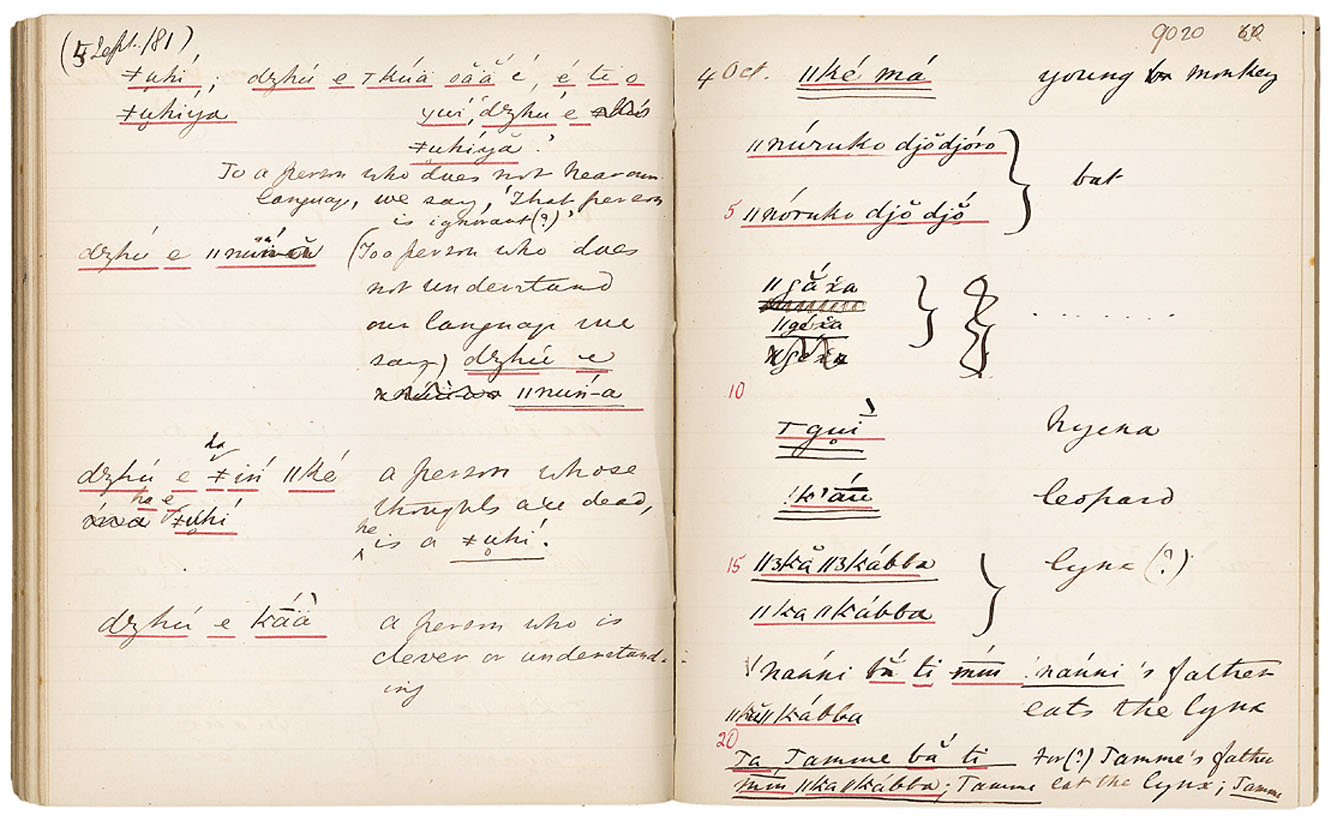 (5 Sept./81)
ǂuhí; dzhú e Tkúä ŏăă é, é ti o
ǂuhíya yuí, 'dzhú e
ǂuhíyă.'
To a person who does not hear our
language, we say, 'That person
is ignorant(?)'
dzhú e (To a person who does
not understand
our language we
say) dzhú e
ǁnuń-a
da
dzhú e ǂiń ǁké a person whose
ha e thoughts are dead,
ǂuhí he is a ǂuhí.
dzhú e káä a person who is
clever or understand-
ing
9020
4 Oct. ǁké má young monkey
ǁnúruko djŏdjóro
bat
5 ǁnóruko djŏ djŏ
ǁgăẋa
ǁgéẋa . . . . . . .
10
Tguì hyena
!k'áu leopard
15 ǁʒkă ǁʒkábba lynx (?)
ǁka ǁkábba
!nanni bă ti m̄m !nanni's father
ǁkăǁkábba eats the lynx
20
Ta, Tamme bă ti For(?) Tamme's father
m̄m ǁkaǁkábba; Tamme eat the lynx; Tamme